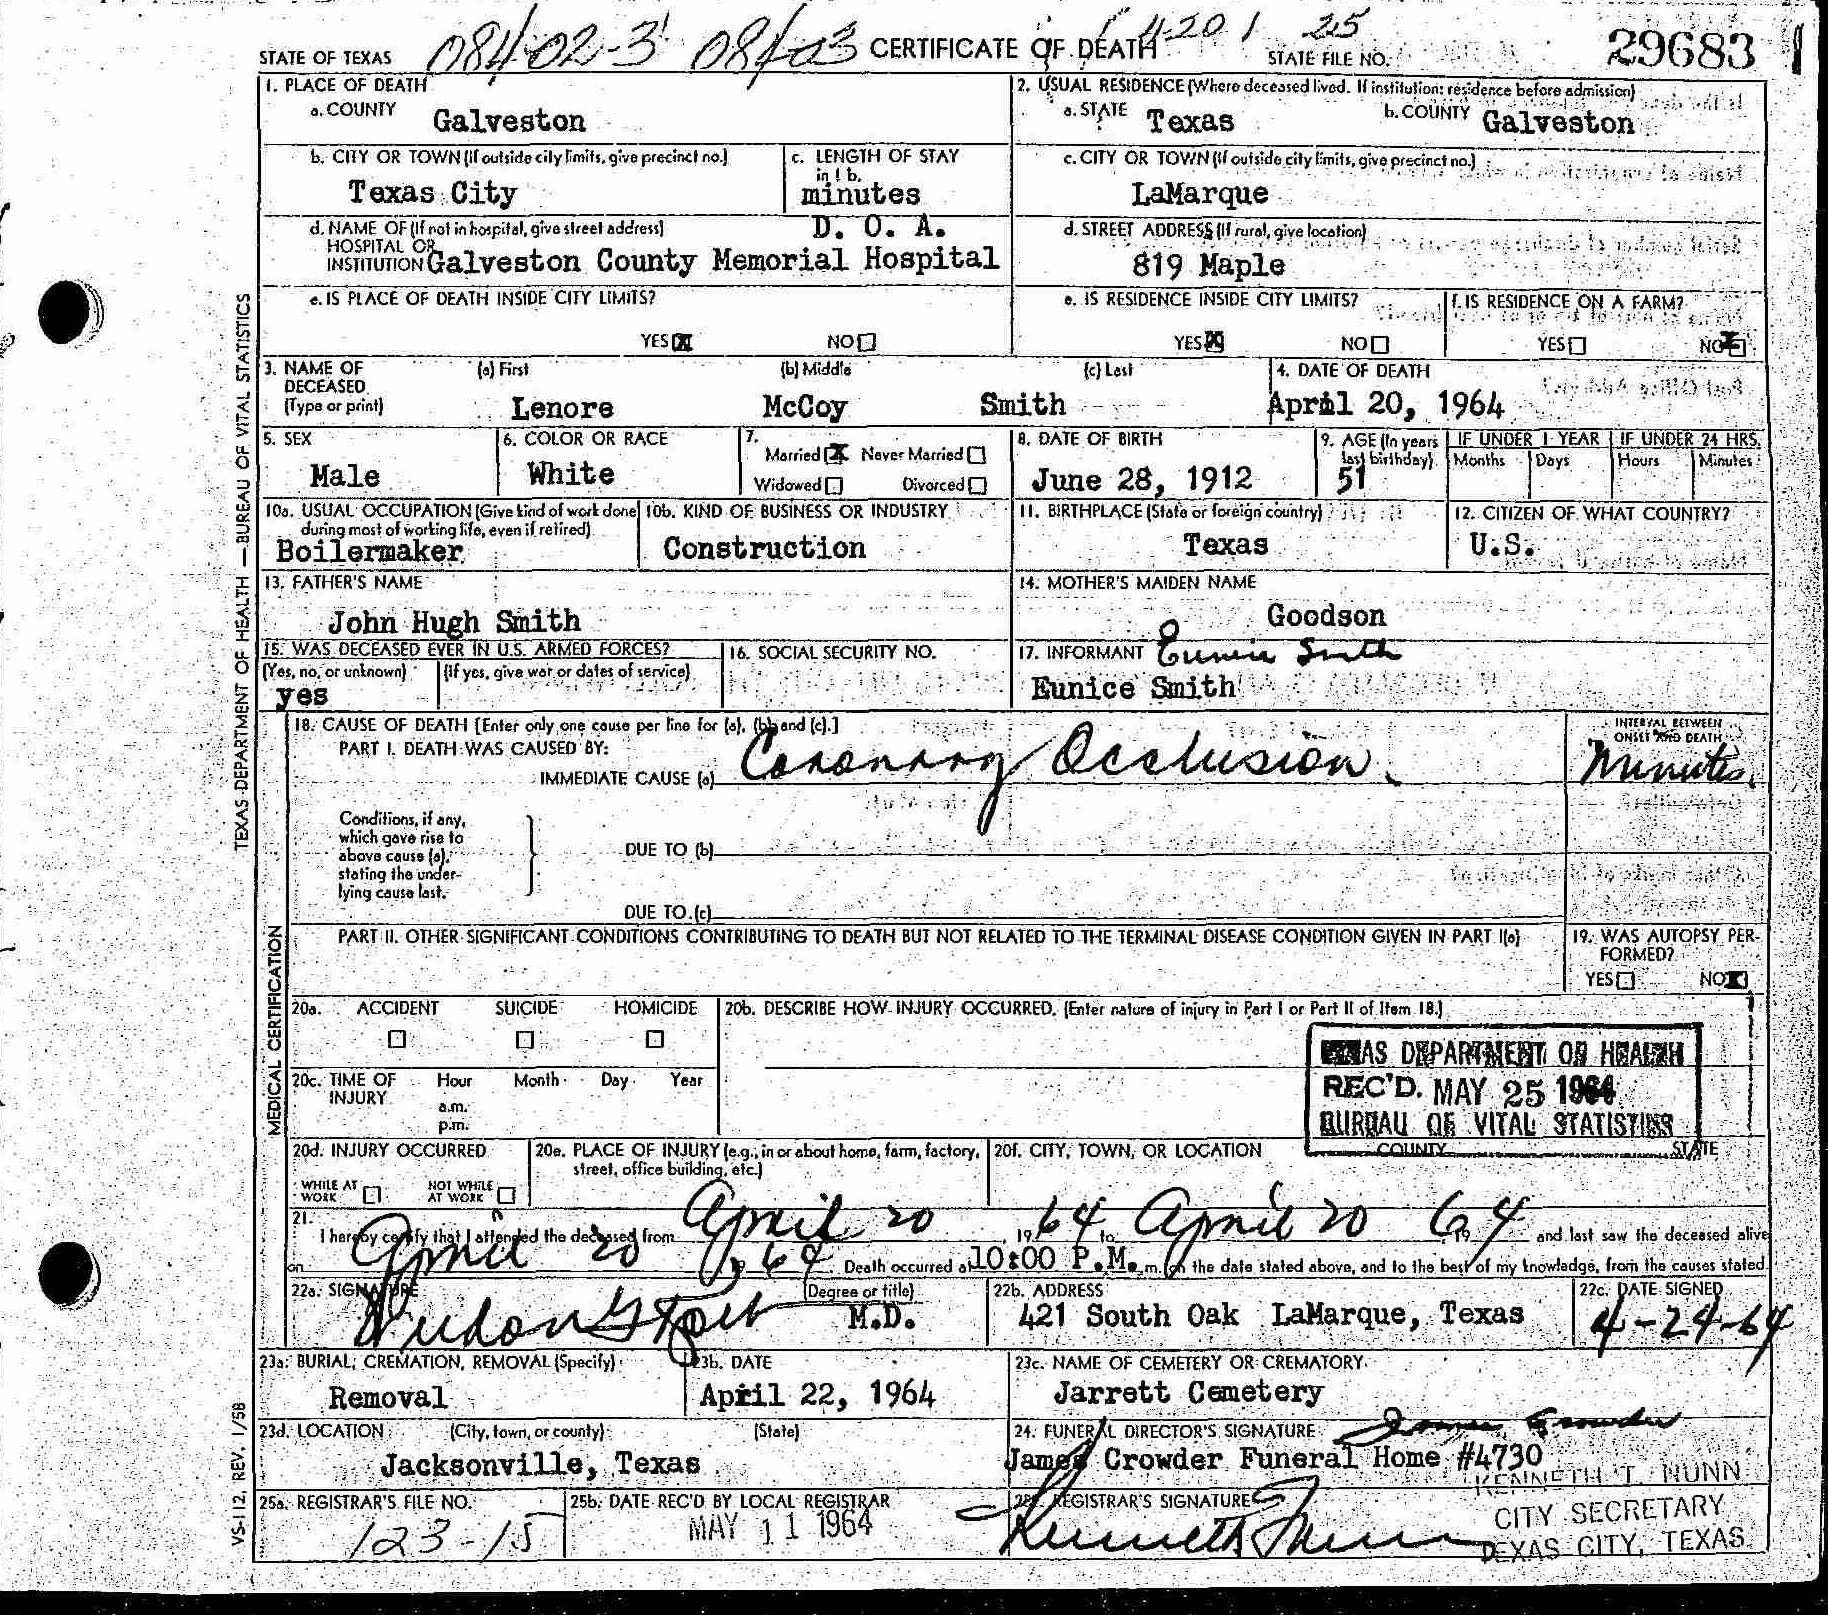 STATE OF TEXAS 084-02-3 08403 CERTIFICATE OF DEATH 4-20 1 25 STATE FILE NO. 29683
1. PLACE OF DEATH
a. COUNTY
Galveston
2. USUAL RESIDENCE (Where deceased lived. If institution: residence before admission)
a. STATE Texas b. COUNTY Galveston
b. CITY OR TOWN (If outside city limits, give precinct no.)
Texas City
c. LENGTH OF STAY
in 1 b.
minutes
c. CITY OR TOWN (If outside city limits, give precinct no.)
LaMarque
d. NAME OF (If not in hospital, give street address) D. O. A.
HOSPITAL OR
INSTITUTION Galveston County Memorial Hospital
d. STREET ADDRESS (If rural, give location)
819 Maple
e. IS PLACE OF DEATH INSIDE CITY LIMITS?
YES X NO
e. IS RESIDENCE INSIDE CITY LIMITS?
YES X NO
f. IS RESIDENCE ON A FARM?
YES NO X
3. NAME OF DECEASED
(Type or print)
(a) First (b) Middle (c) Last
Lenore McCoy Smith
4. DATE OF DEATH
April 20, 1964
5. SEX
Male
6. COLOR OR RACE
White
7.
Married X Never Married
Widowed Divorced
8. DATE OF BIRTH
June 28, 1912
9. AGE (In years
last birthday)
51
IF UNDER 1 YEAR
Months Days
IF UNDER 24 HRS.
Hours Minutes
10a. USUAL OCCUPATION (Give kind of work done
during most of working life, even if retired)
Boilermaker
10b. KIND OF BUSINESS OR INDUSTRY
Construction
11. BIRTHPLACE (State or foreign country)
Texas
12. CITIZEN OF WHAT COUNTRY?
U.S.
13. FATHER'S NAME
John Hugh Smith
14. MOTHER'S MAIDEN NAME
Goodson
15. WAS DECEASED EVER IN U.S. ARMED FORCES?
(Yes, no, or unknown) (If yes, give war or dates of service)
yes
16. SOCIAL SECURITY NO.
17. INFORMANT Eunice Smith
Eunice Smith
18. CAUSE OF DEATH [Enter only one cause per line for (a), (b) and (c).]
PART I. DEATH WAS CAUSED BY:
IMMEDIATE CAUSE (a) Coronary Occlusion.
INTERVAL BETWEEN
ONSET AND DEATH
Minutes.
Conditions, if any,
which gave rise to
above cause (a),
stating the under-
lying cause last.
DUE TO (b)
DUE TO (c)
PART II. OTHER SIGNIFICANT CONDITIONS CONTRIBUTING TO DEATH BUT NOT RELATED TO THE TERMINAL DISEASE CONDITION GIVEN IN PART I(a)
19. WAS AUTOPSY PER-
FORMED?
YES NO X
20a. ACCIDENT SUICIDE HOMICIDE
20b. DESCRIBE HOW INJURY OCCURRED. (Enter nature of injury in Part I or Part II of Item 18.)
TEXAS DEPARTMENT OF HEALTH
REC'D. MAY 25 1964
BUREAU OF VITAL STATISTICS
20c. TIME OF INJURY Hour Month Day Year
a.m.
p.m.
20d. INJURY OCCURRED
WHILE AT WORK NOT WHILE AT WORK
20e. PLACE OF INJURY (e.g., in or about home, farm, factory,
street, office building, etc.)
20f. CITY, TOWN, OR LOCATION COUNTY STATE
21.
I hereby certify that I attended the deceased from April 20, 1964 to April 20 1964 and last saw the deceased alive
on April 20 1964. Death occurred at 10:00 P.M. m. on the date stated above, and to the best of my knowledge, from the causes stated.
22a. SIGNATURE (Degree or title)
M.D.
22b. ADDRESS
421 South Oak LaMarque, Texas
22c. DATE SIGNED
4-24-64
23a. BURIAL, CREMATION, REMOVAL (Specify)
Removal
23b. DATE
April 22, 1964
23c. NAME OF CEMETERY OR CREMATORY
Jarrett Cemetery
23d. LOCATION (City, town, or county) (State)
Jacksonville, Texas
24. FUNERAL DIRECTOR'S SIGNATURE James Crowder
James Crowder Funeral Home #4730
25a. REGISTRAR'S FILE NO.
123-15
25b. DATE REC'D BY LOCAL REGISTRAR
MAY 11 1964
25c. REGISTRAR'S SIGNATURE
Kenneth T. Nunn
KENNETH T. NUNN
CITY SECRETARY
TEXAS CITY, TEXAS
TEXAS DEPARTMENT OF HEALTH — BUREAU OF VITAL STATISTICS
MEDICAL CERTIFICATION
VS-112, REV. 1/58